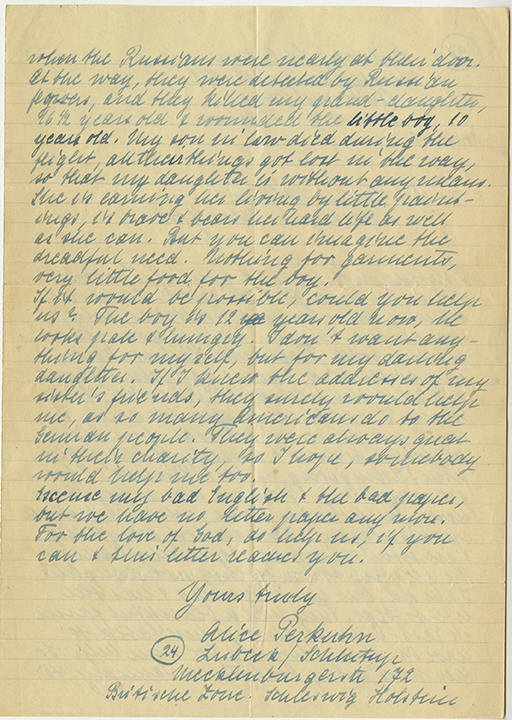 when the Russians were nearly at their door.
At the way, they were detected by Russian
powers, and they killed my grand-daughter,
16½ years old & wounded the little boy, 10
years old. My son in law died during the
flight, all their things got lost in the way,
so that my daughter is without any means.
She is earning her living by little paint-
ings, is brave & bears her hard life as well
as she can. But you can imagine the
dreadful need. Nothing for garments,
very little food for the boy.
If it would be possible, could you help
us? The boy is 12 years old now, he
looks pale & hungry. I don't want any-
thing for myself, but for my darling
daughter. If I knew the addresses of my
sister's friends, they surely would help
me, as so many Americans do to the
German people. They were always great
in their charity, so I hope, somebody
would help me too.
Excuse my bad English & the bad paper,
but we have no letter paper any more.
For the love of God, oh help us, if you
can & this letter reaches you.
Yours truly
Alice Perkuhn
(24) Lübeck / Schlutup
Mecklenburgerstr 172
Britische Zone - Schleswig Holstein